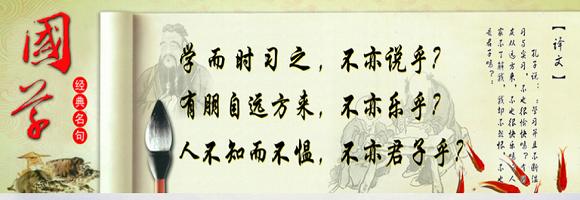 國学
经典名句
学而时习之，不亦说乎？
有朋自远方来，不亦乐乎？
人不知而不愠，不亦君子乎？
【译文】
孔子说：“学习并且不断温
习与实习，不也很愉快吗？有朋
友从远方来，不也很快乐吗？人
家不了解我，我却不怨恨，不也
是君子吗？”